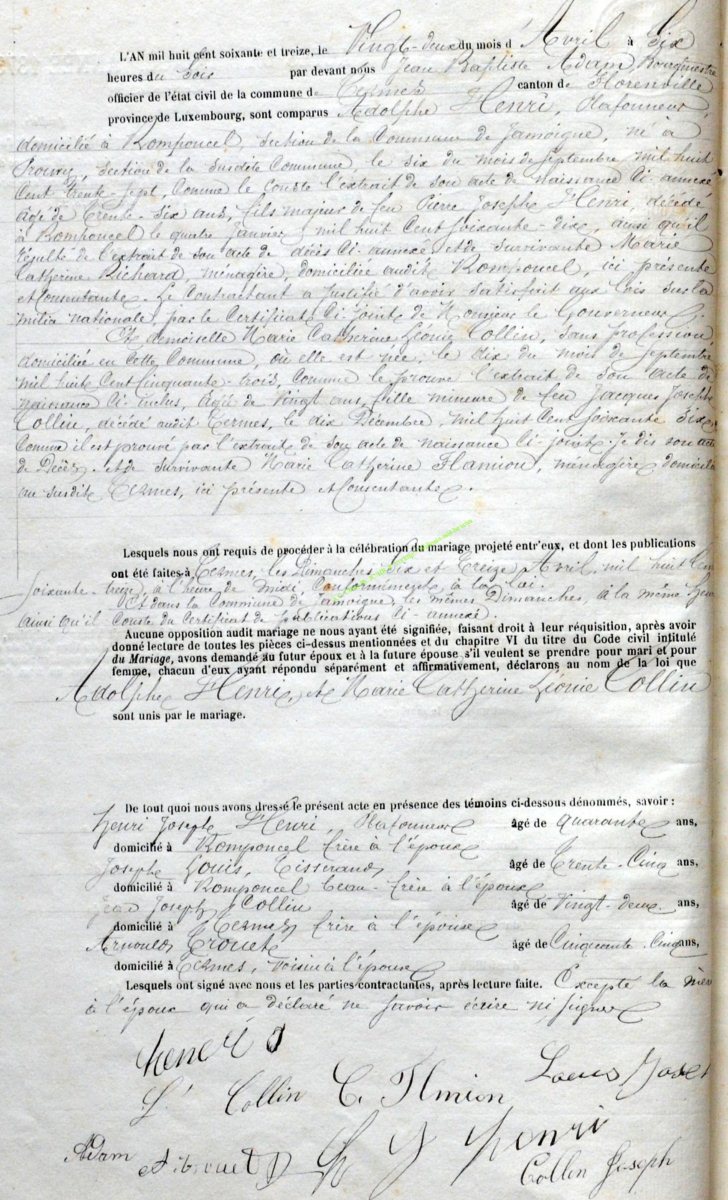 L'AN mil huit cent soixante et treize, le Vingt-deux du mois d'Avril à Six
heures du Soir par devant nous Jean Baptiste Adam Bourgmestre
officier de l'état civil de la commune de Termes canton de Florenville
province de Luxembourg, sont comparus Adolphe Henri, Plafonneur,
domicilié à Romponcel, Section de la Commune de Jamoigne, né à
Prouvy, Section de la Susdite Commune, le Six du mois de Septembre mil huit
Cent Trente-Sept, Comme le Conste l'extrait de Son acte de naissance Ci-annexé
âgé de Trente-Six ans, fils majeur de feu Pierre Joseph Henri, décédé
à Romponcel le quatre Janvier, mil huit Cent Soixante-dix, ainsi qu'il
résulte de l'extrait de Son acte de décès Ci-annexé et de Survivante Marie
Catherine Richard, ménagère, domiciliée audit Romponcel, ici présente
et Consentante. Le Contractant a justifié d'avoir Satisfait aux lois Sur la
milice nationale, par le Certificat Ci-joint de Monsieur le Gouverneur.
Et demoiselle Marie Catherine Léonie Collin, Sans profession,
domiciliée en Cette Commune, où elle est née, le dix du mois de Septembre
mil huit Cent Cinquante-trois, Comme le prouve l'extrait de Son acte de
naissance Ci-inclus, âgée de Vingt ans, fille mineure de feu Jacques Joseph
Collin, décédé audit Termes, le dix Décembre, mil huit Cent Soixante Six
Comme il est prouvé par l'extrait de Son acte de naissance Ci-joint. Je dis Son acte
de Décès. et de Survivante Marie Catherine Flamion, ménagère domiciliée
au Susdit Termes, ici présente et Consentante.
Lesquels nous ont requis de procéder à la célébration du mariage projeté entr'eux, et dont les publications
ont été faites à Termes, les Dimanches Six et Treize Avril, mil huit Cent
Soixante-treize, à l'heure de midi Conformément à la loi.
Et dans la Commune de Jamoigne, les mêmes Dimanches, à la même heure
ainsi qu'il Conste du Certificat de publications Ci-annexé.
Aucune opposition audit mariage ne nous ayant été signifiée, faisant droit à leur réquisition, après avoir
donné lecture de toutes les pièces ci-dessus mentionnées et du chapitre VI du titre du Code civil intitulé
du Mariage, avons demandé au futur époux et à la future épouse s'il veulent se prendre pour mari et pour
femme, chacun d'eux ayant répondu séparément et affirmativement, déclarons au nom de la loi que
Adolphe Henri, et Marie Catherine Léonie Collin
sont unis par le mariage.
De tout quoi nous avons dressé le présent acte en présence des témoins ci-dessous dénommés, savoir :
Henri Joseph Henri, Plafonneur âgé de Quarante ans,
domicilié à Romponcel frère à l'époux
Joseph Louis, Tisserand, âgé de Trente-Cinq ans,
domicilié à Romponcel beau-frère à l'époux
Jean Joseph Collin âgé de Vingt-deux ans,
domicilié à Termes, frère à l'épouse
Arnould Trouet âgé de Cinquante-Cinq ans,
domicilié à Termes, voisin à l'époux
Lesquels ont signé avec nous et les parties contractantes, après lecture faite. Excepté la mère
à l'époux qui a déclaré ne Savoir écrire ni Signer
henri a
L. Collin C. Flmion Louis Josep
Adam A. trouet h j henri
Collin Joseph